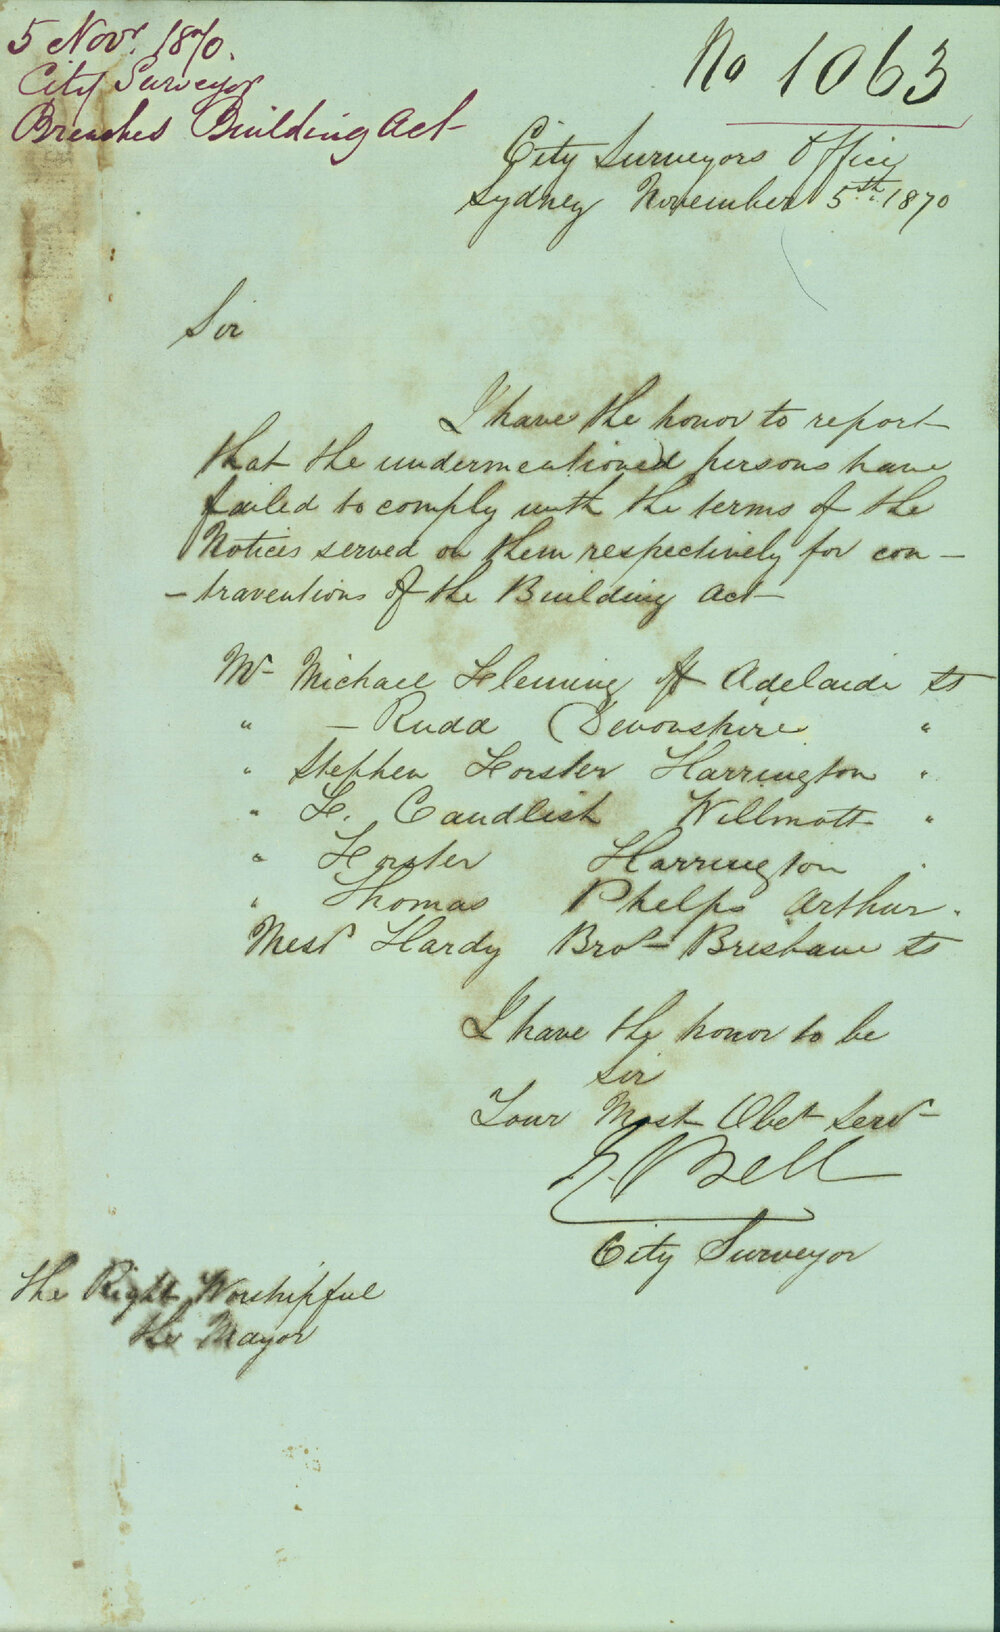 5 Novr. 1870.
City Surveyor
Breaches Building Act
No 1063
City Surveyors Office
Sydney November 5th. 1870
Sir
I have the honor to report
that the undermentioned persons have
failed to comply with the terms of the
Notices served on them respectively for con–
–traventions of the Building Act
Mr Michael Fleming off Adelaide St
" – Rudd Devonshire "
" Stephen Forster Harrington "
" F. Caudlish Willmott "
" Forster Harrington "
" Thomas Phelps Arthur "
Messrs Hardy Bros Brisbane St
I have the honor to be
Sir
Your Most Obet Servt
E. Bell
City Surveyor
The Right Worshipful
the Mayor